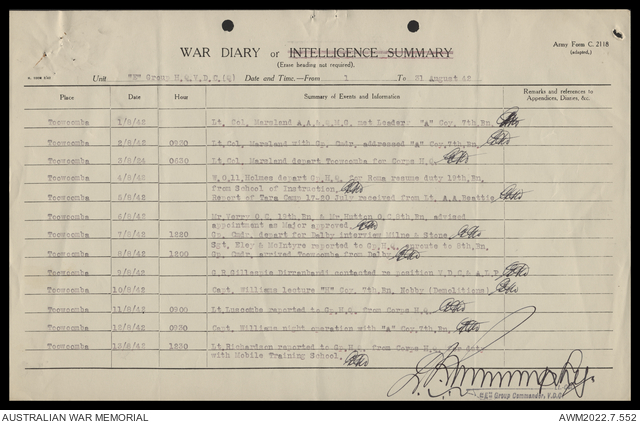 Army Form C. 2118
(adapted.)
WAR DIARY or INTELLIGENCE SUMMARY
(Erase heading not required).
Unit "E" Group H.Q. V.D.C. (Q) Date and Time.—From 1 To 31 August 42
Place Date Hour Summary of Events and Information Remarks and references to Appendices, Diaries, &c.
Toowoomba 1/8/42 Lt. Col. Marsland A.A.&.Q.M.G. met Leaders "A" Coy. 7th.Bn.
Toowoomba 2/8/42 0930 Lt.Col. Marsland with Gp. Cmdr. addressed "A" Coy.7th.Bn.
Toowoomba 3/8/42 0630 Lt.Col. Marsland depart Toowoomba for Corps H.Q.
Toowoomba 4/8/42 W.O.11.Holmes depart Gp.H.Q. for Roma resume duty 19th.Bn.
from School of Instruction.
Toowoomba 5/8/42 Report of Tara Camp 17-20 July received from Lt. A.A.Beattie
Toowoomba 6/8/42 Mr.Perry G.E. 12th.Bn. & Mr.Hutton G.C.8th.Bn. advised
appointment as Major approved
Toowoomba 7/8/42 1220 Gp. Cmdr. depart for Dalby interview Milne & Stone.
Sgt. Kley & McIntyre reported to Gp.H.Q. enroute to 8th.Bn.
Toowoomba 8/8/42 1200 Gp. Cmdr. arrived Toowoomba from Dalby
Toowoomba 9/8/42 G.R.Gillespie Dirranbandi contacted re position V.D.C.& A.L.F.
Toowoomba 10/8/42 Capt. Williams lecture "H" Coy. 7th.Bn. Nobby (Demolitions)
Toowoomba 11/8/42 0900 Lt.Luscombe reported to Gp.H.Q. from Corps H.Q.
Toowoomba 12/8/42 0930 Capt. Williams night operation with "A" Coy.7th.Bn.
Toowoomba 13/8/42 1230 Lt.Richardson reported to Gp.H.Q. from Corps H.Q. for
with Mobile Training School.
"E" Group Commander, V.D.C.
AUSTRALIAN WAR MEMORIAL AWM2022.7.552